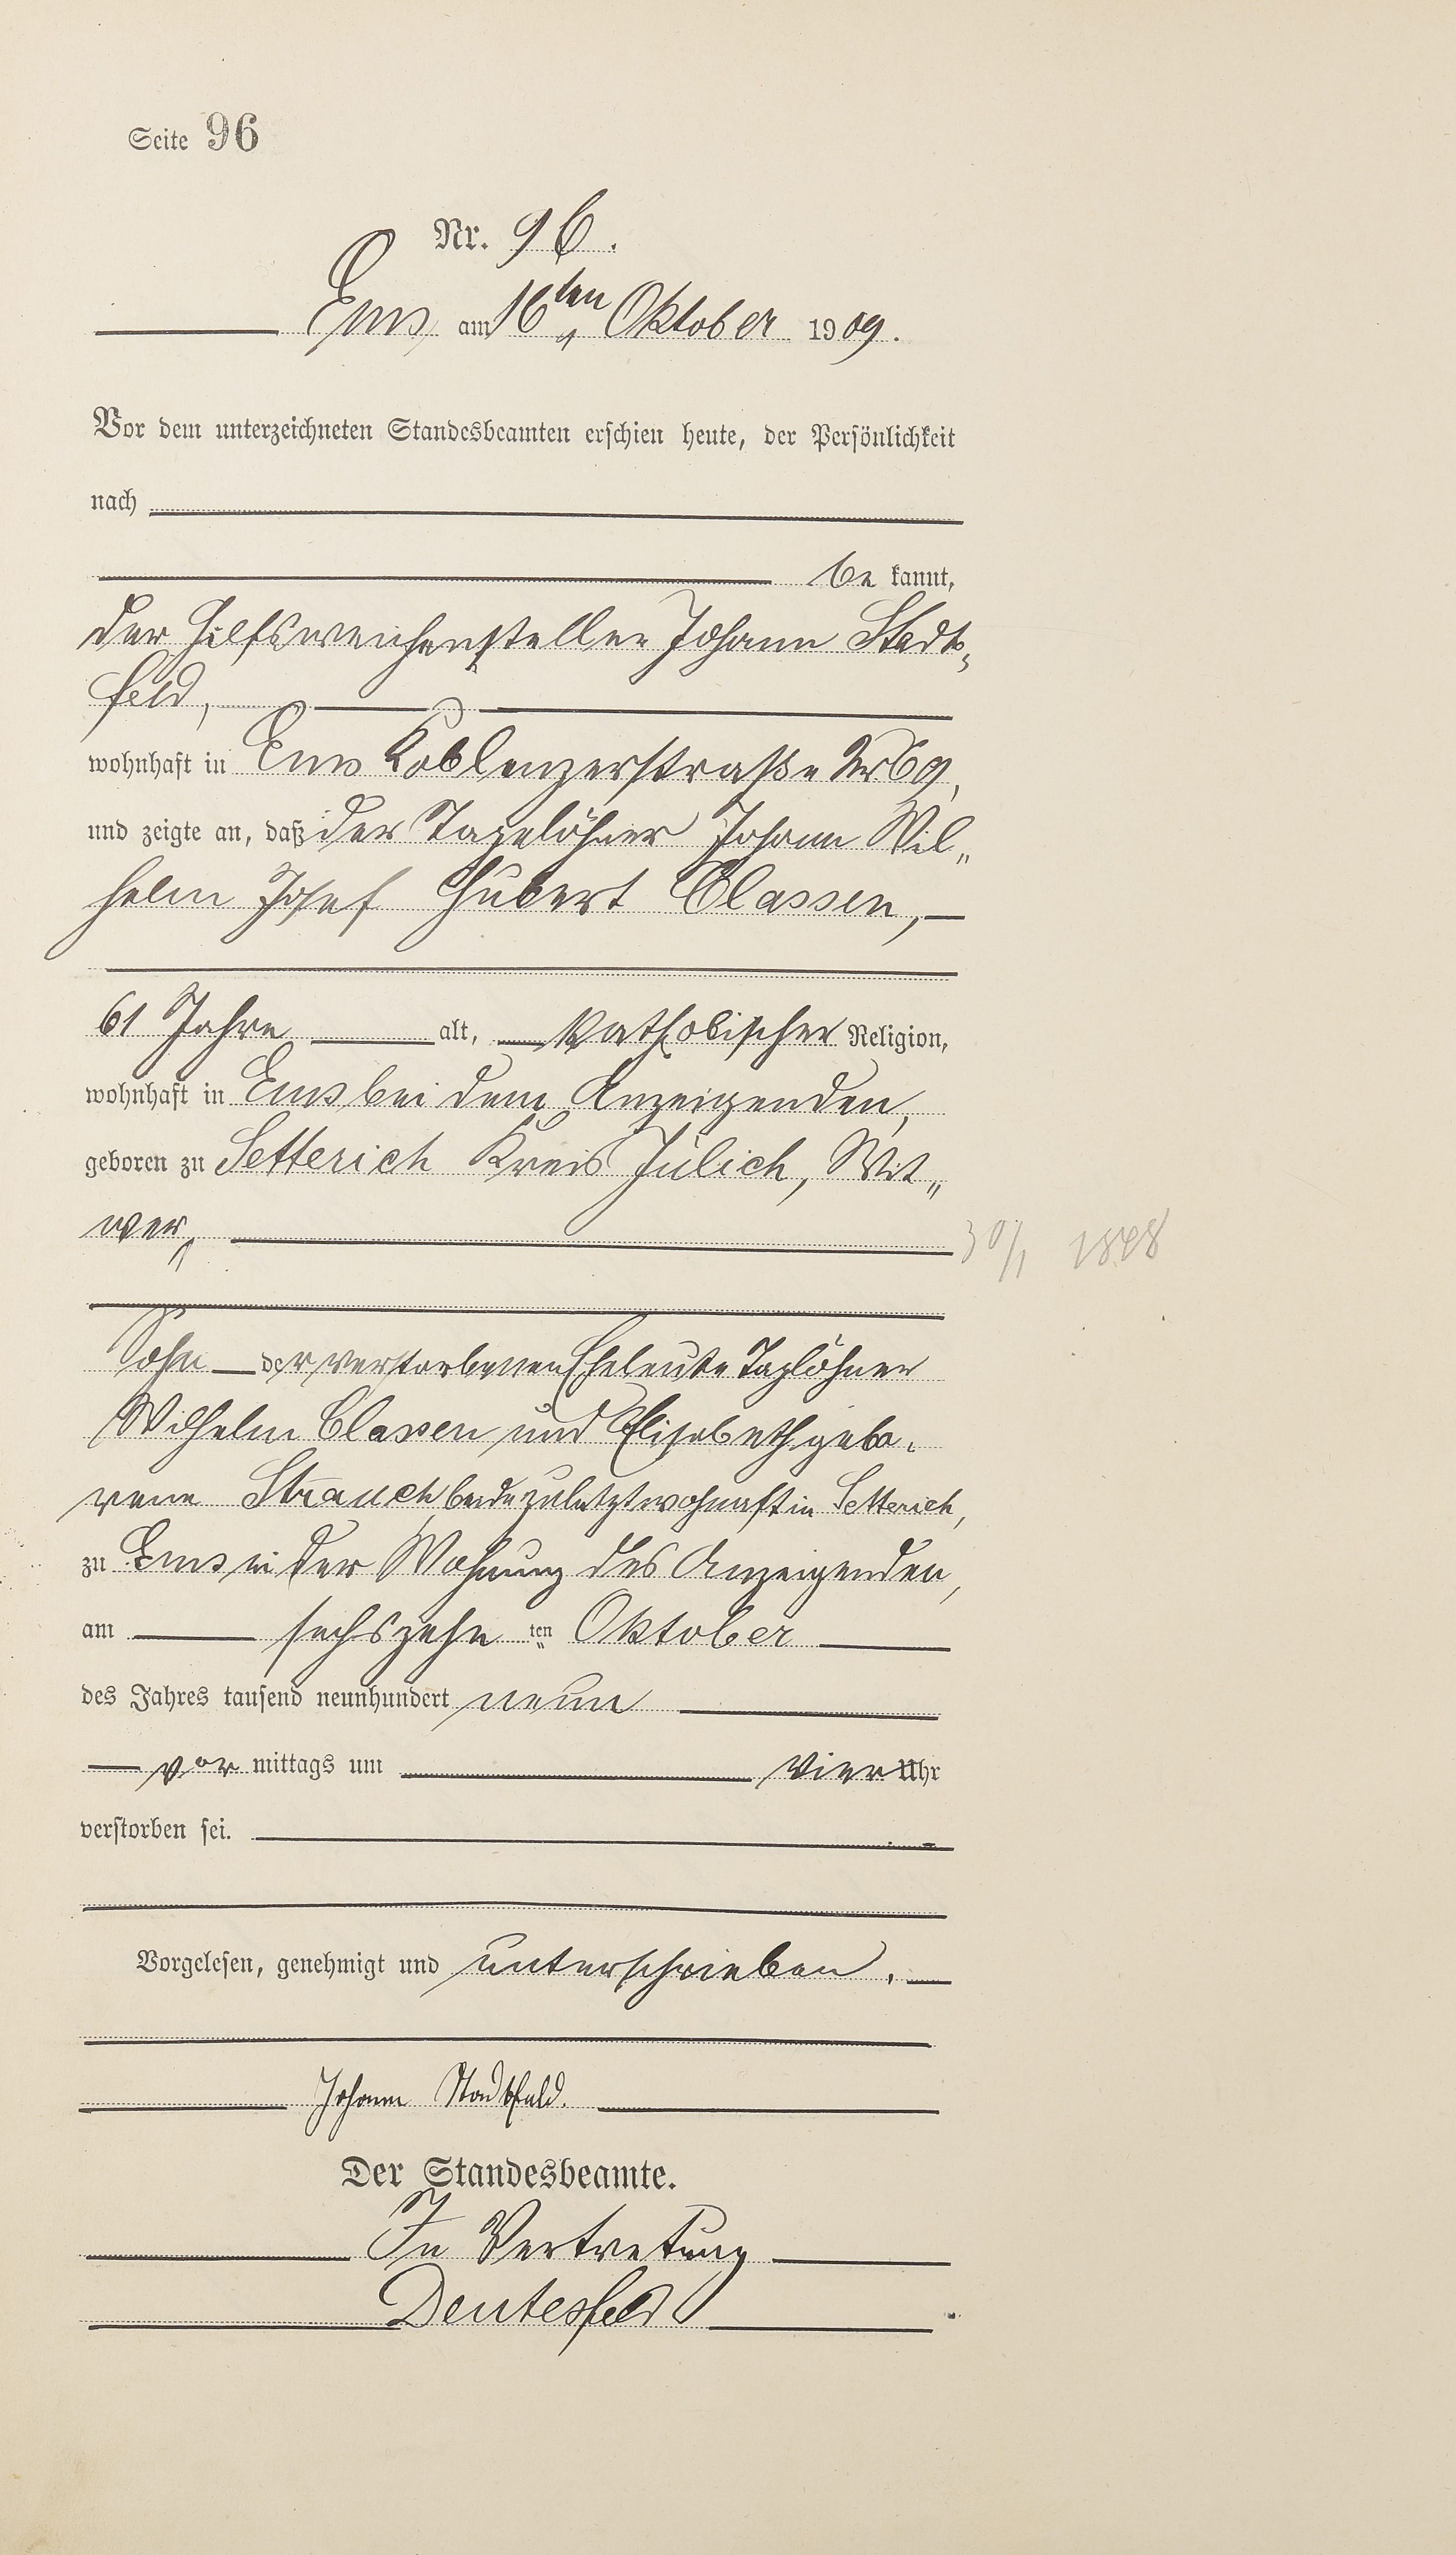 Seite 96
Nr. 96.
Ems am 16ten Oktober 1909.
Vor dem unterzeichneten Standesbeamten erschien heute, der Persönlichkeit
nach
be kannt,
der Hilfsweichensteller Johann Stadt„
feld,
wohnhaft in Ems Koblenzerstraße Nr 69,
und zeigte an, daß der Tagelöhner Johann Wil„
helm Josef Hubert Classen,
61 Jahre alt, katholischer Religion,
wohnhaft in Ems bei dem Anzeigenden,
geboren zu Setterich Kreis Jülich, Wit„
wer,
30/1 1848
Sohn der verstorbenen Eheleute Taglöhner
Wilhelm Classen und Elisabeth gebo„
rene Strauch beide zuletzt wohnhaft in Setterich,
zu Ems in der Wohnung des Anzeigenden,
am sechszehn ten Oktober
des Jahres tausend neunhundert neun
vor mittags um vier Uhr
verstorben sei.
Vorgelesen, genehmigt und unterschrieben.
Johann Stadtfeld.
Der Standesbeamte.
In Vertretung
Dentesfeld